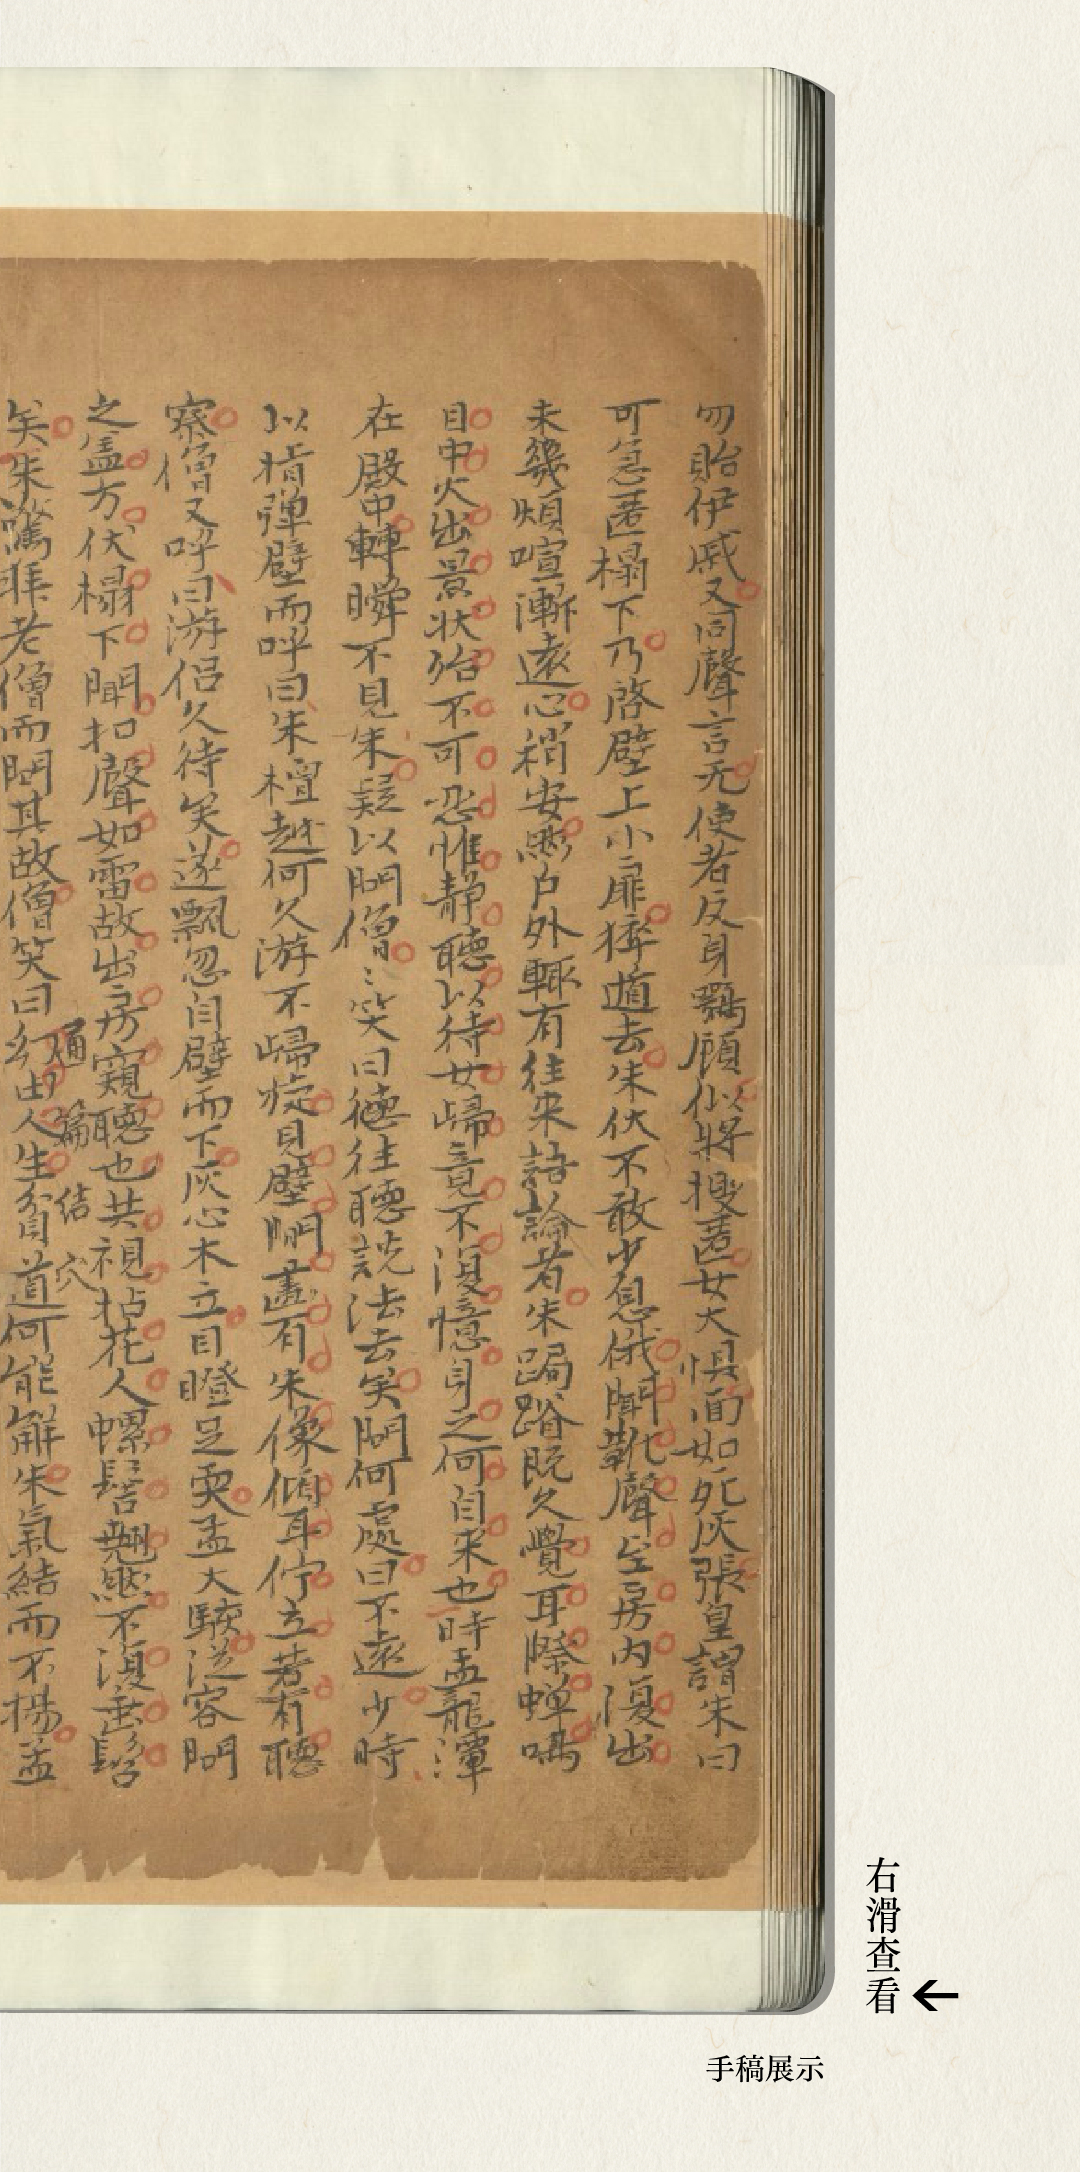 勿貽伊戚又同聲言无使者反身鶚顧似將搜匿女大惧面如死灰張皇謂朱曰
可急匿榻下乃啓壁上小扉猝遁去朱伏不敢少息俄聞靴聲至房内復出
未幾煩喧漸遠心稍安然户外輒有往来語論者朱跼蹐既久覺耳際蟬鳴
目中火出景状殆不可忍惟静聽以待女歸竟不復憶身之何自来也時孟龍潭
在殿中轉瞬不見朱疑以問僧〻笑曰往聽説法去矣問何處曰不遠少時
以指弹壁而呼曰朱檀越何久游不歸旋見壁間畫有朱像傾耳佇立若有聽
察僧又呼曰游侣久待矣遂飄忽自壁而下灰心木立目瞪足耎孟大駭從容問
之盖方伏榻下聞扣聲如雷故出房窺聽也共視拈花人螺髻翹然不復垂髫
矣朱驚拜老僧而問其故僧笑曰幻由人生貧道何能解朱氣結而不揚孟
通篇結穴
右滑查看
手稿展示